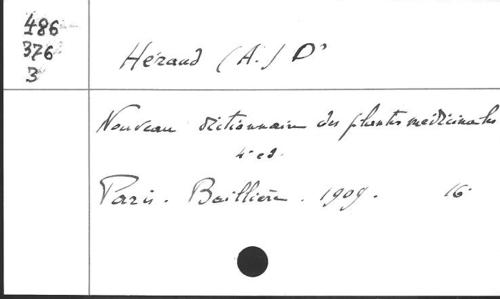 486
376
3
Héraud (A.) Dr
Nouveau dictionnaire des plantes médicinales
4e ed.
Paris. Baillière. 1909. 16